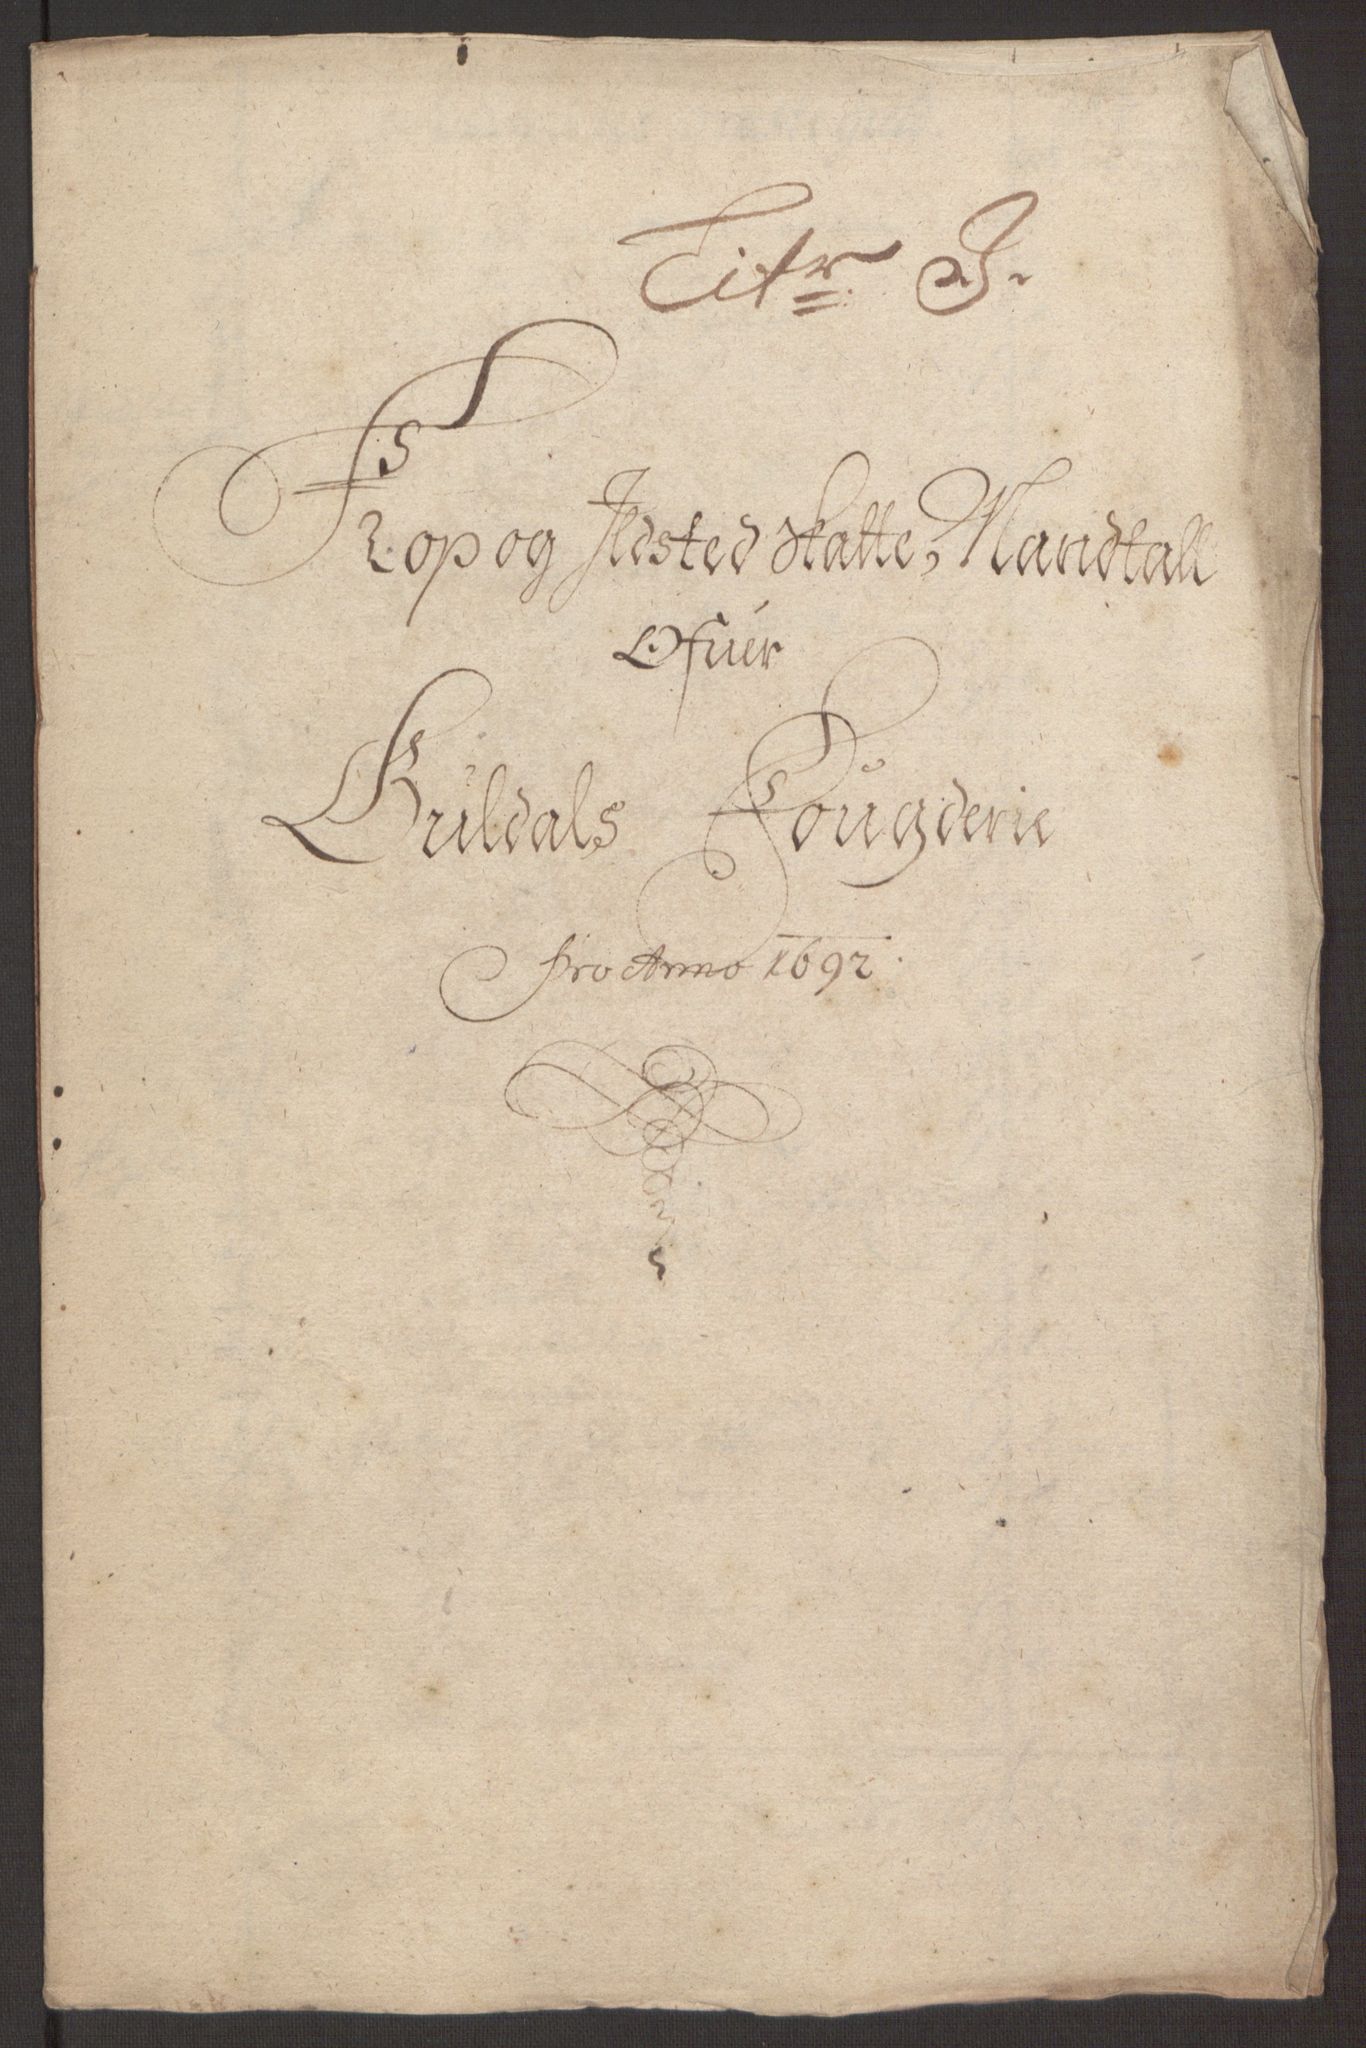 Litr J.
Kop og Ildsted Skatte, Mandtall
Ofuer
Guldals Fougderie
Pro Anno 1692